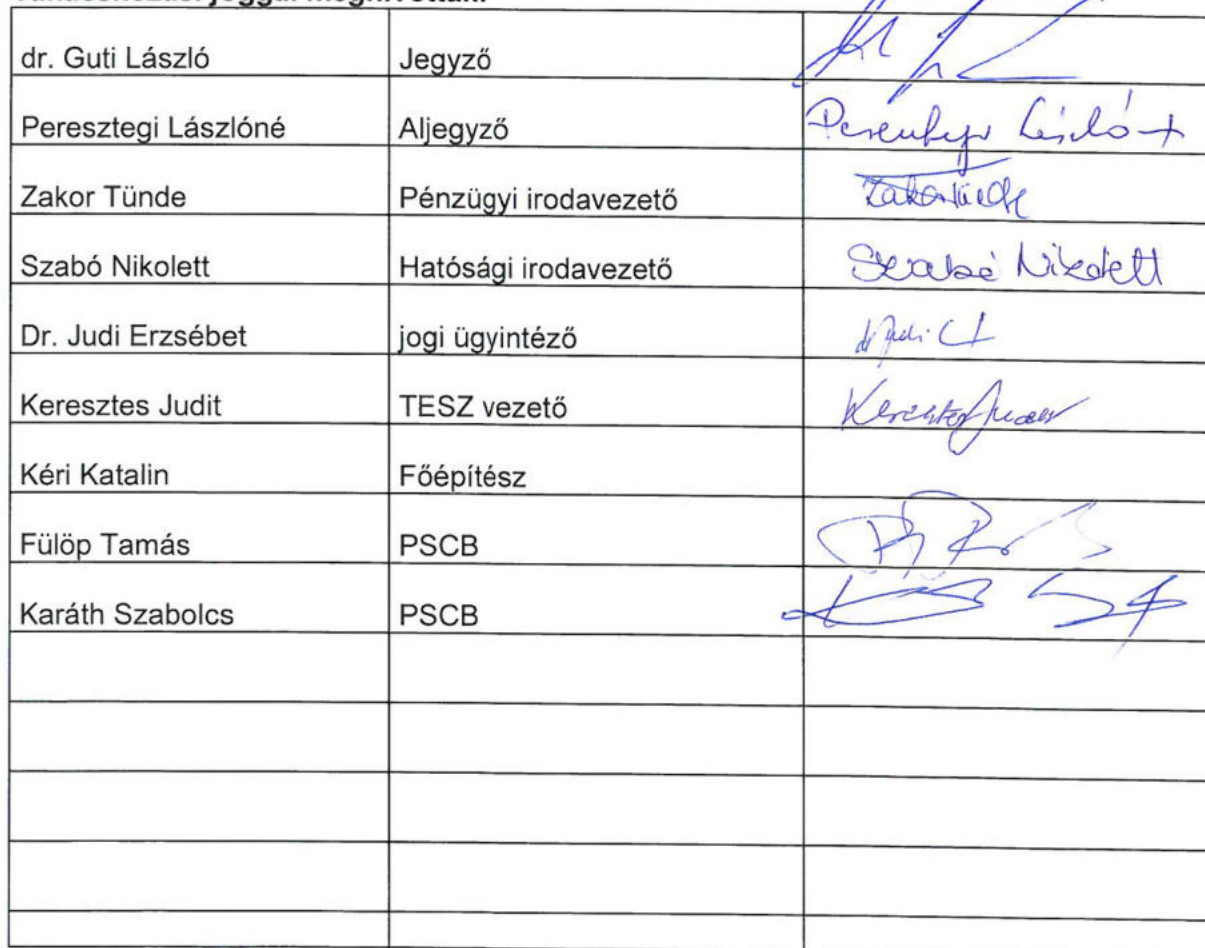 dr. Guti László Jegyző
Peresztegi Lászlóné Aljegyző
Zakor Tünde Pénzügyi irodavezető
Szabó Nikolett Hatósági irodavezető Szabó Nikolett
Dr. Judi Erzsébet jogi ügyintéző
Keresztes Judit TESZ vezető
Kéri Katalin Főépítész
Fülöp Tamás PSCB
Karáth Szabolcs PSCB